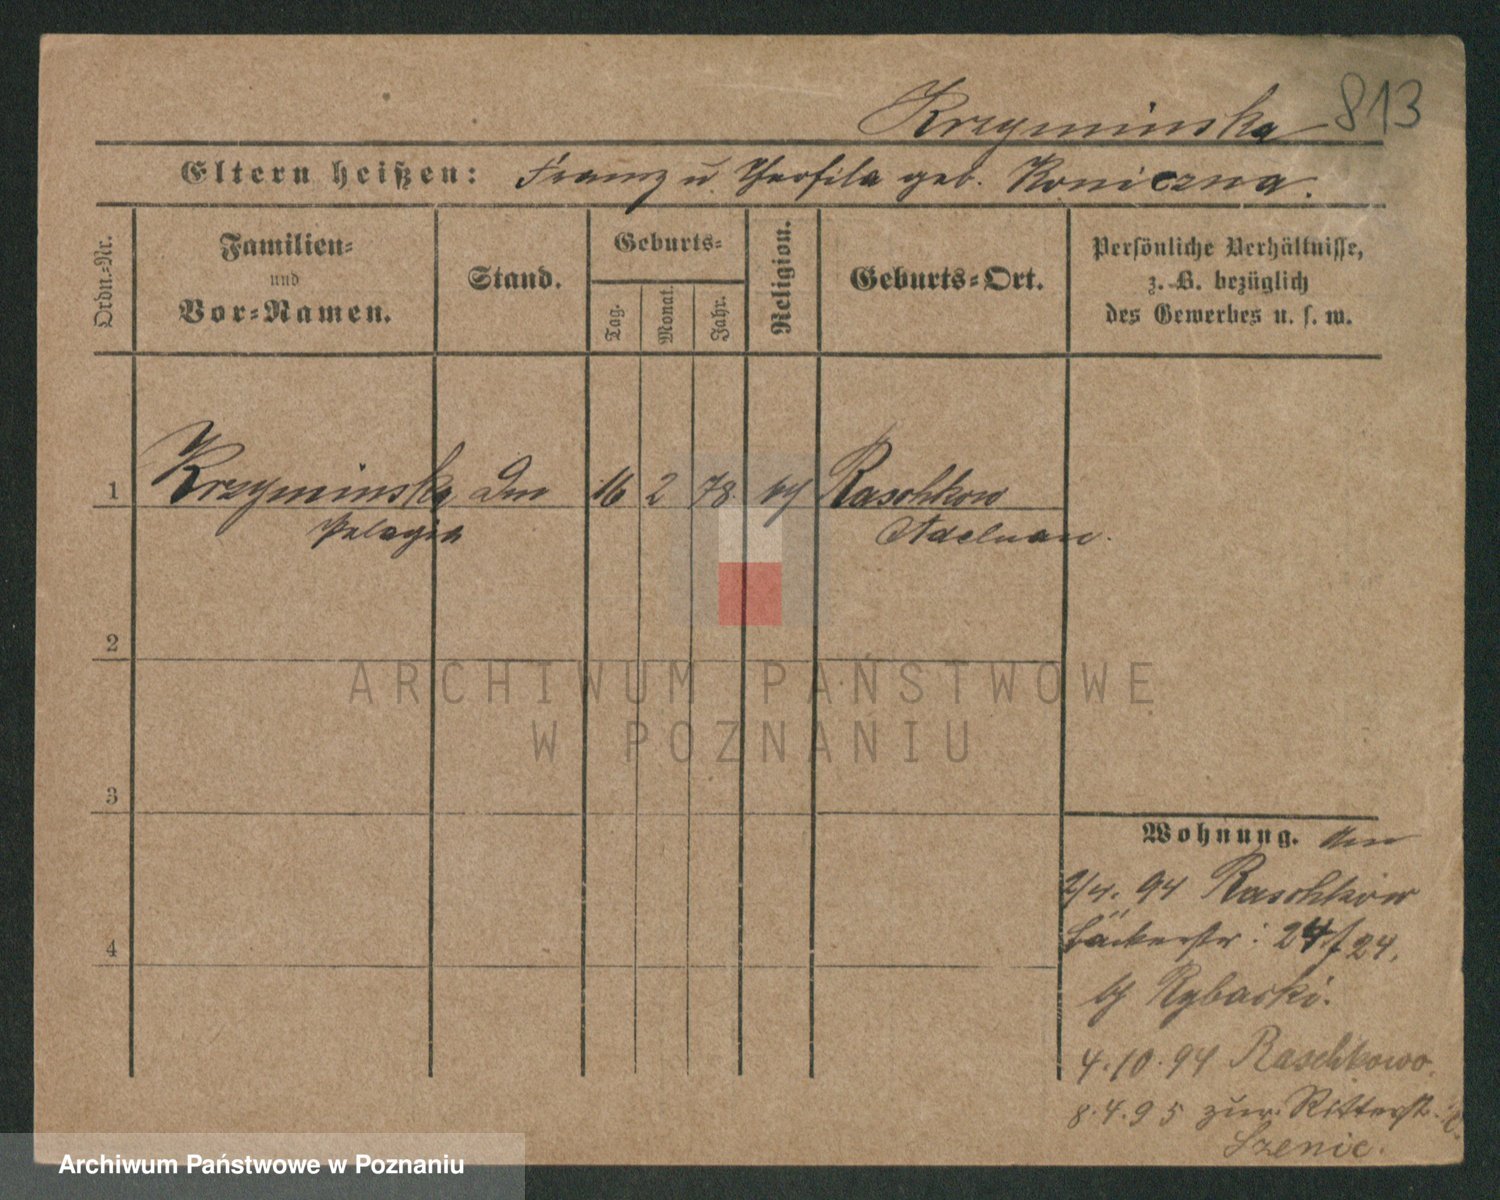 Krzyminska 813
Eltern heißen: Franz u. Theofila geb. Koniczna.
Ordn.-Nr.
Familien-
und
Vor-Namen.
Stand.
Geburts-
Tag.
Monat.
Jahr.
Religion.
Geburts-Ort.
Persönliche Verhältnisse,
z. B. bezüglich
des Gewerbes u. s. w.
1 Krzyminska 16 2 78. Raschkow
Pelagia Adelnau.
2
ARCHIWUM PAŃSTWOWE
W POZNANIU
3
Wohnung.
94 Raschkow
Bäckerstr: 24/24.
Rybacki.
4
4.10.94 Raschkowo.
8.4.95 zur. Ritterstr.
Szenic.
Archiwum Państwowe w Poznaniu